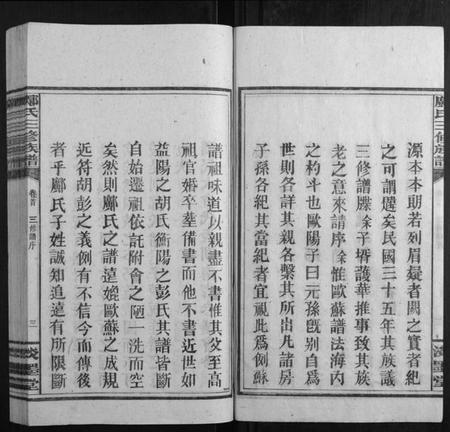 鄺氏三修族譜
源本本朗若列眉疑者闕之實者紀
之可謂慎矣民國三十五年其族議
三修譜牒余子壻護華推事致其族
老之意來請序余惟歐蘇譜法海內
之杓斗也歐陽子曰元孫旣別自爲
世則各詳其親各繫其所出凡諸房
子孫各紀其當紀者宜視此爲例蘇
譜祖味道以親盡不書惟其父至高
祖官婚卒葬備書而他不書近世如
益陽之胡氏衡陽之彭氏其譜皆斷
自始遷祖依託附會之陋一洗而空
矣然則鄺氏之譜遠媲歐蘇之成規
近符胡彭之義例有不信今而傳後
者乎鄺氏子姓誠知追遠有所限斷
鄺氏三修族譜
卷首
三修譜序
三